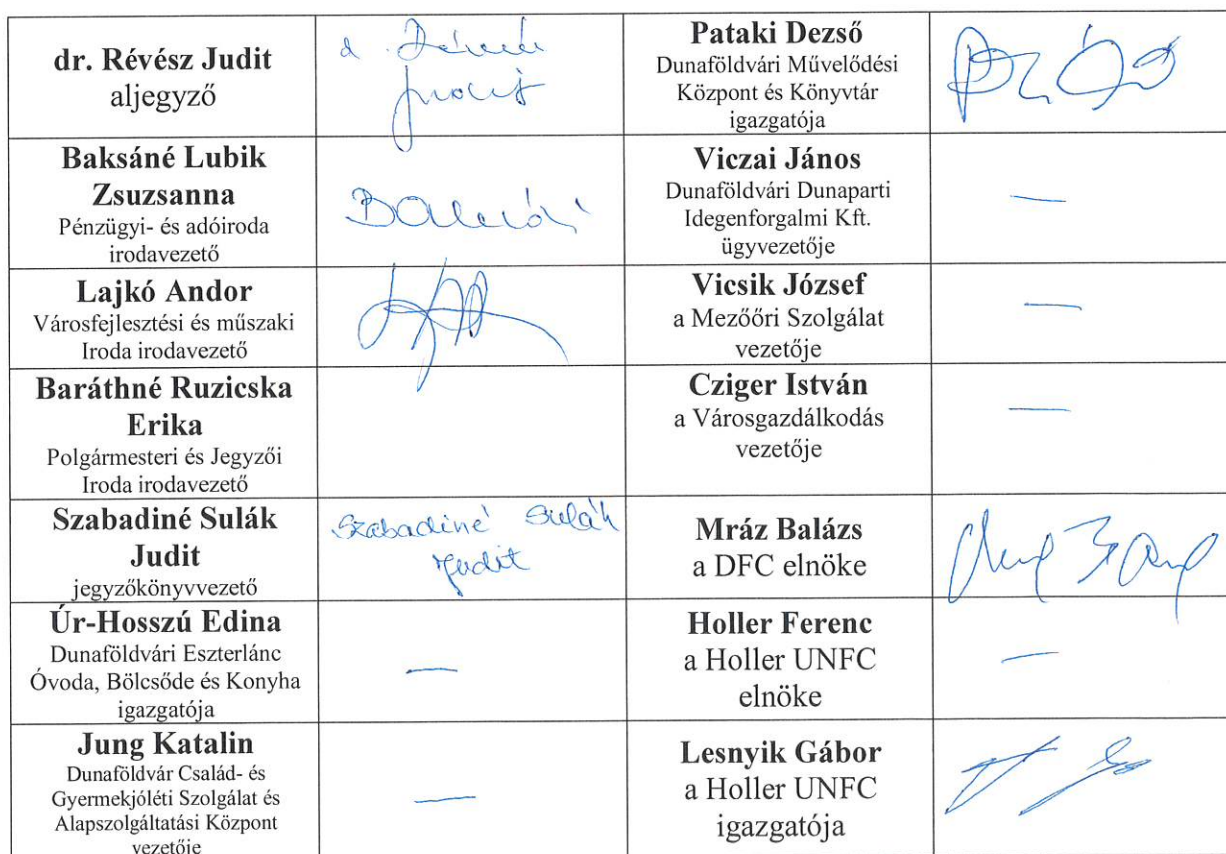 dr. Révész Judit
aljegyző
Pataki Dezső
Dunaföldvári Művelődési
Központ és Könyvtár
igazgatója
Baksáné Lubik
Zsuzsanna
Pénzügyi- és adóiroda
irodavezető
Viczai János
Dunaföldvári Dunaparti
Idegenforgalmi Kft.
ügyvezetője
—
Lajkó Andor
Városfejlesztési és műszaki
Iroda irodavezető
Vicsik József
a Mezőőri Szolgálat
vezetője
—
Baráthné Ruzicska
Erika
Polgármesteri és Jegyzői
Iroda irodavezető
Cziger István
a Városgazdálkodás
vezetője
—
Szabadiné Sulák
Judit
jegyzőkönyvvezető
Szabadiné Sulák
Judit
Mráz Balázs
a DFC elnöke
Úr-Hosszú Edina
Dunaföldvári Eszterlánc
Óvoda, Bölcsőde és Konyha
igazgatója
—
Holler Ferenc
a Holler UNFC
elnöke
—
Jung Katalin
Dunaföldvár Család- és
Gyermekjóléti Szolgálat és
Alapszolgáltatási Központ
vezetője
—
Lesnyik Gábor
a Holler UNFC
igazgatója